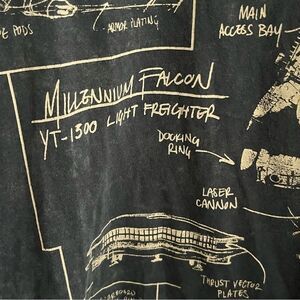 PODS
ARMOR PLATING
MAIN
ACCESS BAY
MILLENNIUM FALCON
YT-1300 LIGHT FREIGHTER
DOCKING
RING
LASER
CANNON
THRUST VECTOR
PLATES